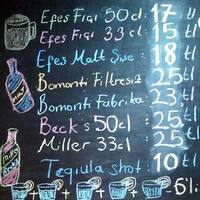 Efes Fıçı 50cl: 17 tl
Efes Fıçı 33cl: 15 tl
Efes Malt Şişe: 18 tl
Bomonti Filtresiz: 25 tl
Bomonti Fabrika: 23 tl
Beck's 50cl: 25 tl
Miller 33cl: 25 tl
Teqiula shot: 10 tl
+ + + + 6%